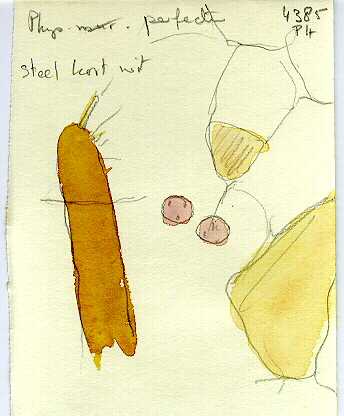 Phys. nur. perfecta
4385
P4
steel kort wit